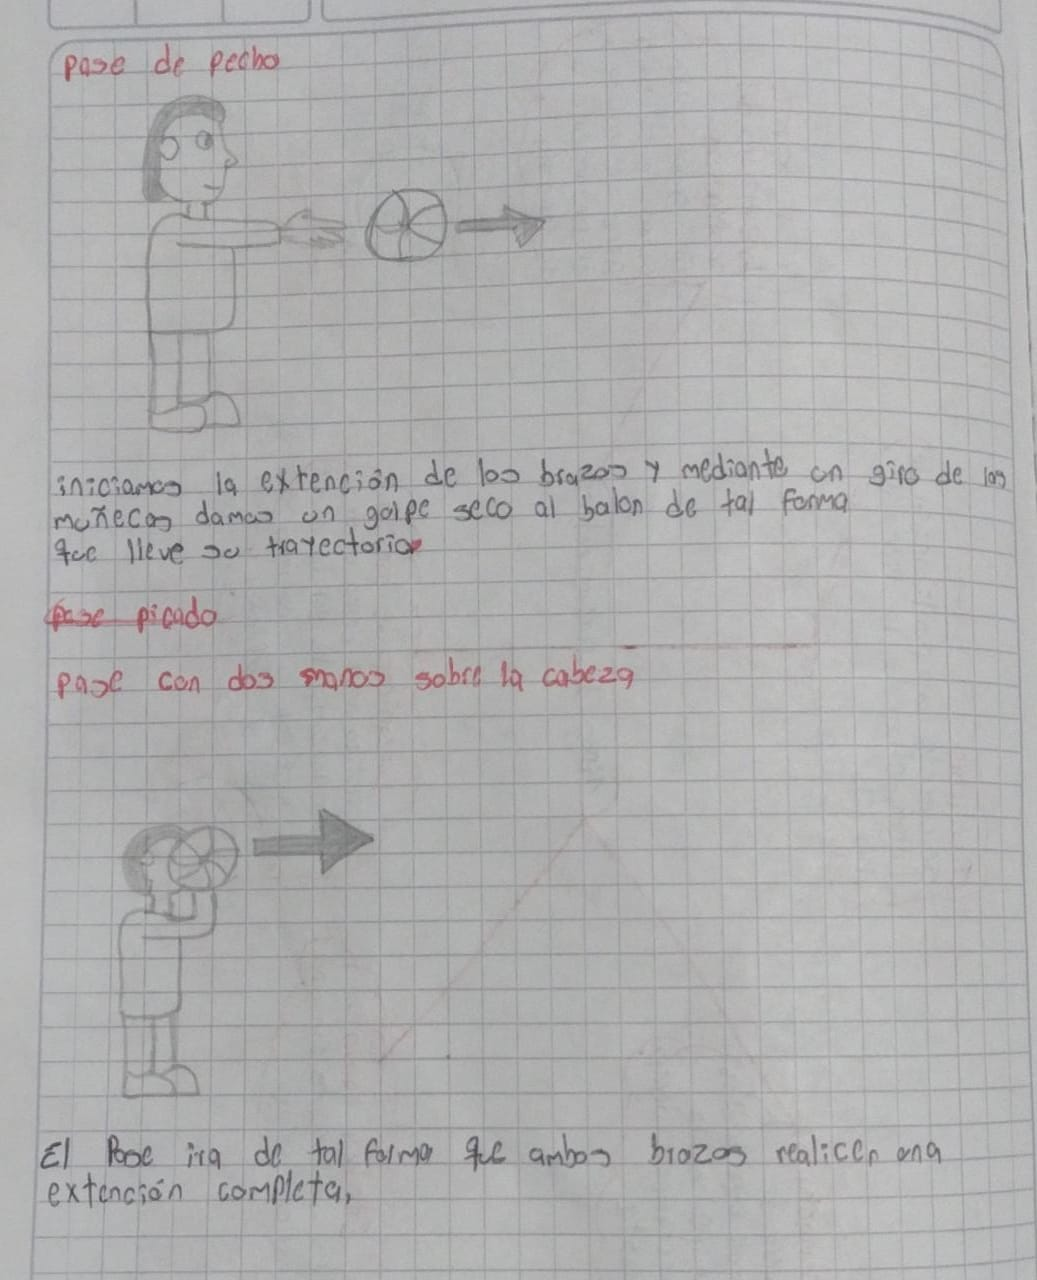 pase de pecho
iniciamos la extención de los brazos y mediante un giro de las
muñecas damos un golpe seco al balon de tal forma
que lleve su trayectoria
pase picado
pase con dos manos sobre la cabeza
El Pase ira de tal forma que ambos brazos realicen una
extención completa,